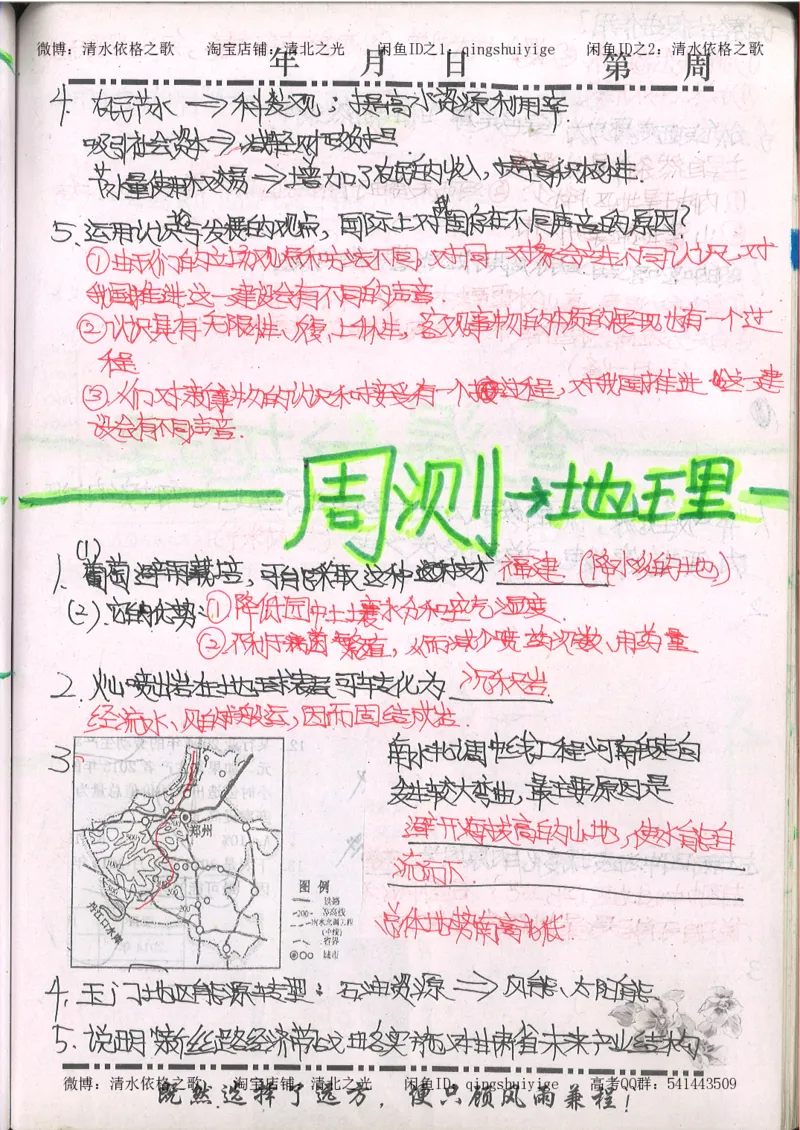 微博：清水依格之歌 淘宝店铺：清北之光 闲鱼ID之1：qingshuiyige 闲鱼ID之2：清水依格之歌
年 月 日 第 周
4. 农民节水→科学发展观：提高水资源利用率
吸引社会资本→减轻财政负担
节水量使用权交易→增加了农民的收入，提高积极性.
5. 运用认识与发展的观点，国际上对我国存在不同声音的原因？
①由于人们的立场观点和方法不同，对同一对象会产生不同认识，对
我国推进这一建设会有不同的声音.
②认识具有无限性、反复、上升性，客观事物的本质的展现也有一个过
程
③人们对新事物的认识和接受有一个过程，对我国推进这一建
设会有不同声音.
周测→地理
1. (1) 葡萄避雨栽培，可能采取这种技术 福建 (降水多的地)
(2) 它的优势：①降低园中土壤水分和空气湿度.
②不利于病菌繁殖，从而减少喷药次数、用药量
2. 火山喷出岩在地球表层可转化为 沉积岩
经流水、风的搬运，因而固结成岩.
3.
南水北调中线工程河南段走向
发生较大弯曲，最主要原因是
避开海拔高的山地，使水能自
流而下
总体地势南高北低.
郑州
丹江口水库
500
200
图例
铁路
等高线
南水北调工程
(中线)
省界
城市
4. 玉门地区能源转型：石油资源→风能、太阳能
5. 说明"新丝路经济带"战略实施对甘肃省未来产业结构
微博：清水依格之歌 淘宝店铺：清北之光 闲鱼ID：qingshuiyige 高考QQ群：541443509
既然选择了远方，便只顾风雨兼程！